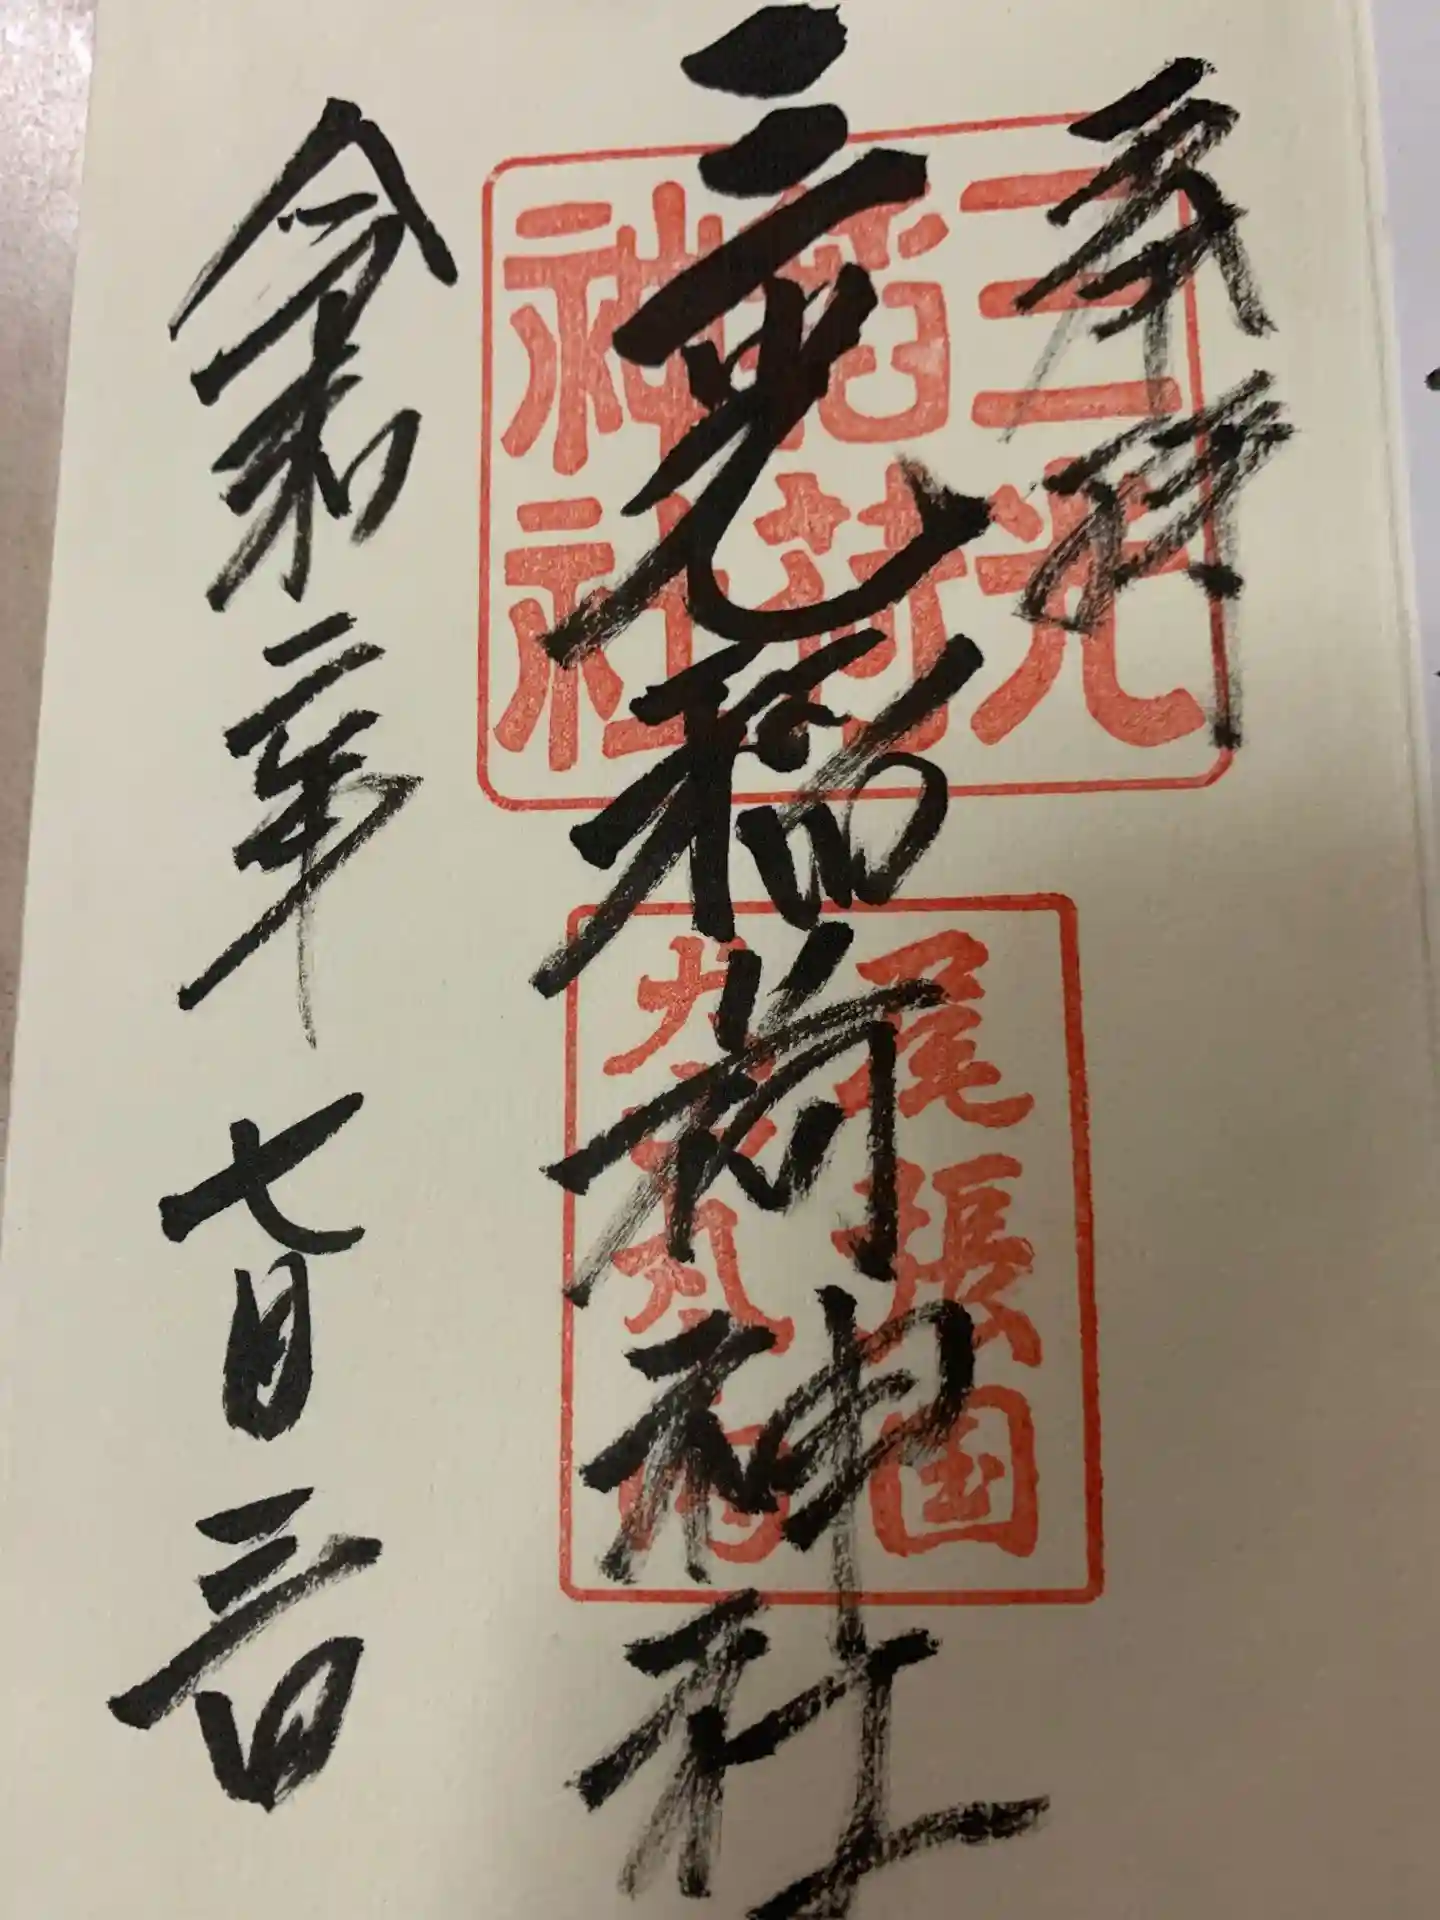 奉拝
三光稲荷神社
三光
稲荷
神社
尾張国
犬山
丸の内
令和二年 七月 三日